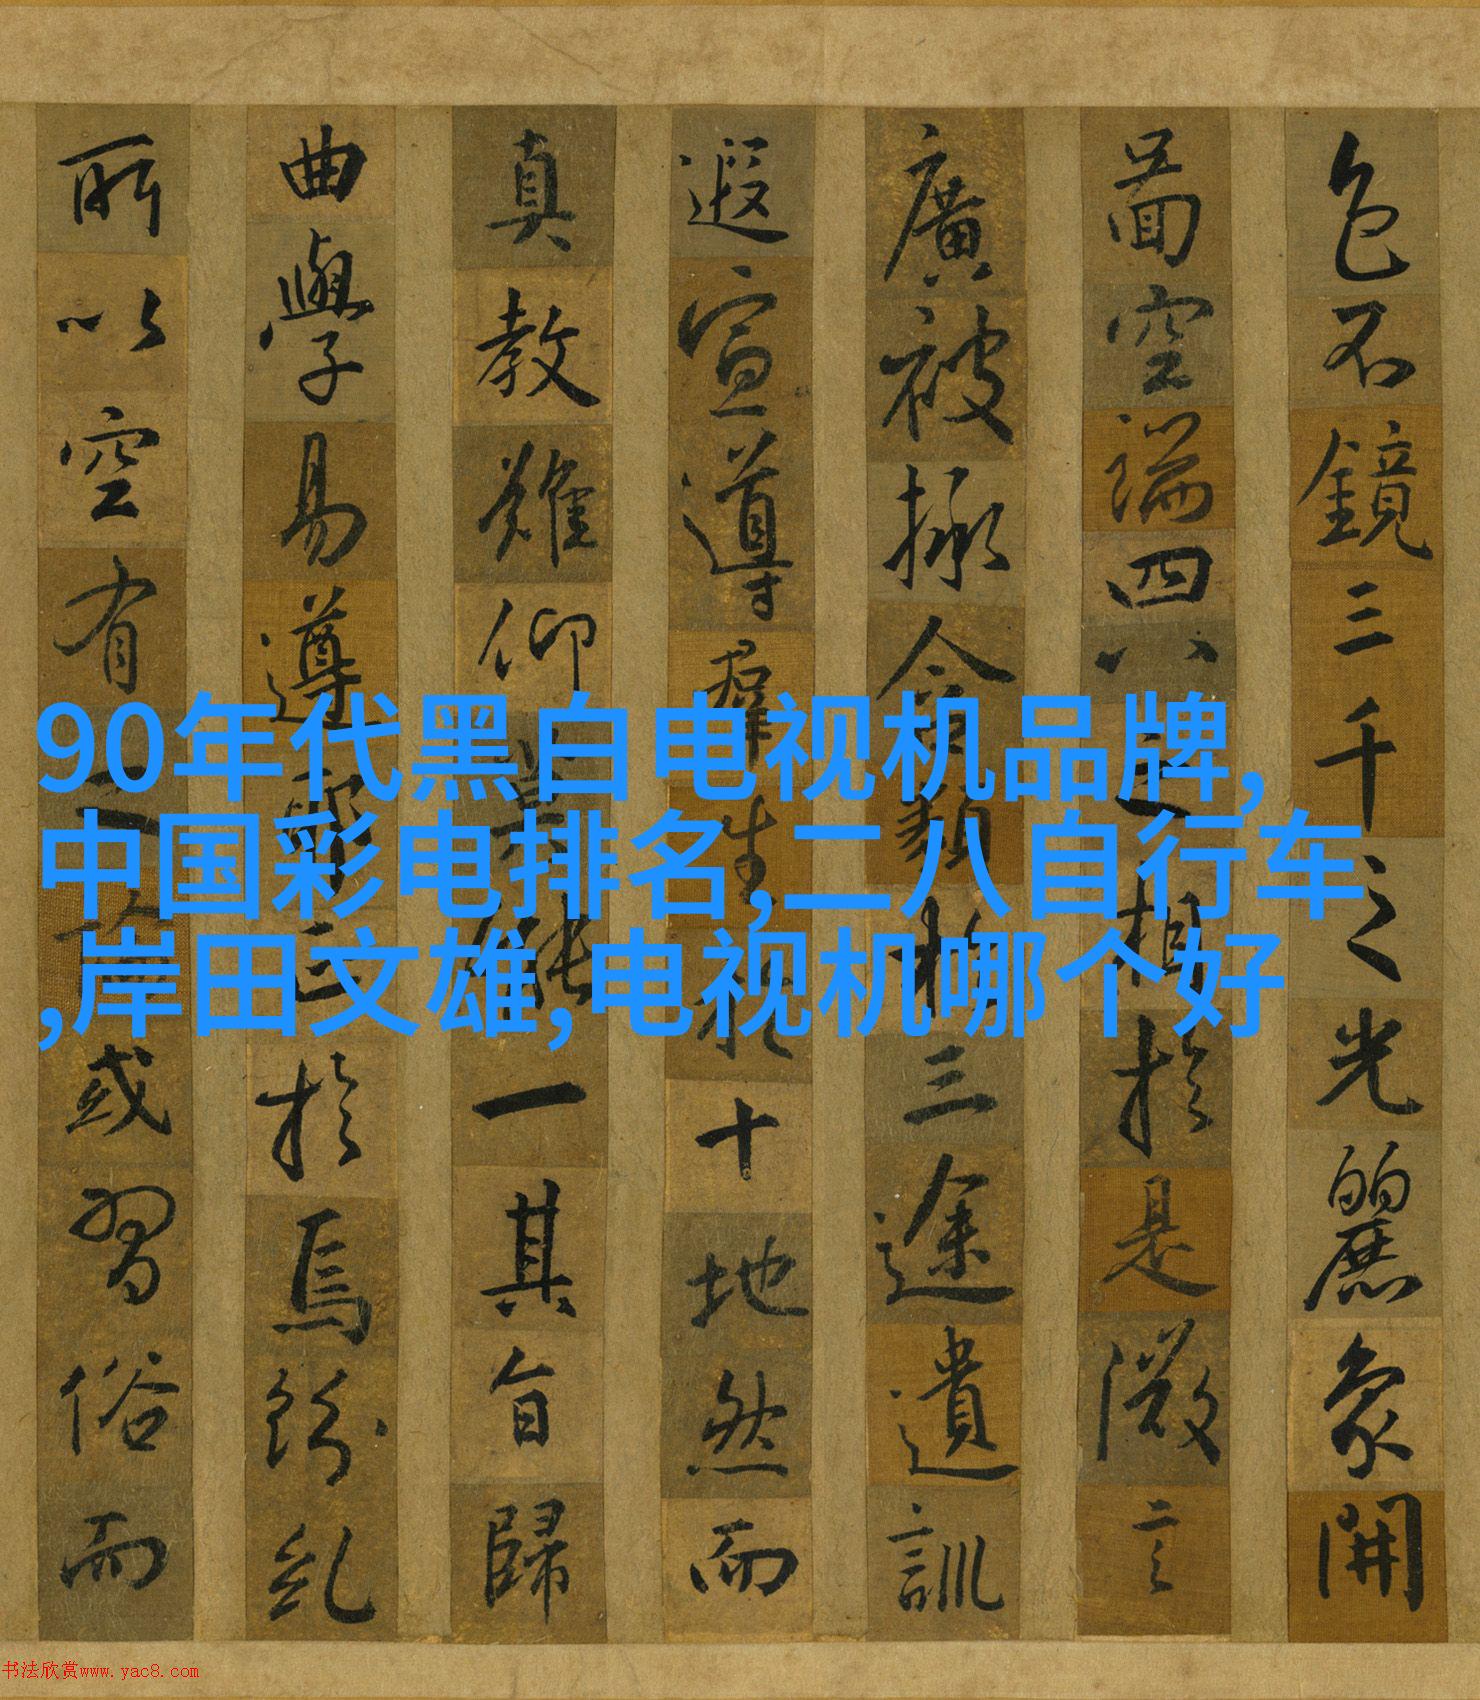 90年代黑白电视机品牌,
中国彩电排名,二八自行车
,岸田文雄,电视机哪个好
色不鏡三千之光麗象開
啚空端四八之相於是微言
廣被拯含類於三途遺訓
遐宣導群生於十地然而
真教難仰莫能一其旨歸
曲學易遵邪正於焉紛糺
所以空有之論或習俗而
书法欣赏www.yac8.com